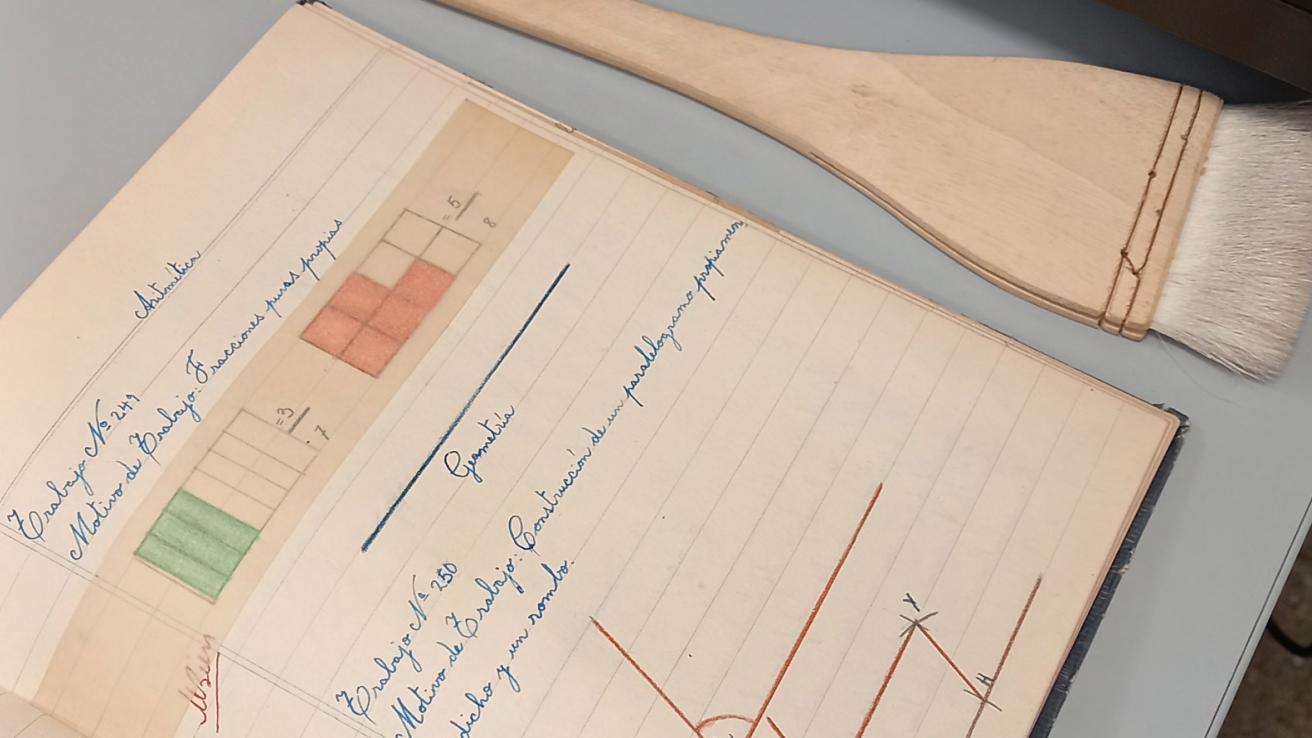 Aritmética
Trabajo Nº 249
Motivo de Trabajo: Fracciones puras propias
=3
7
=5
8
MBien
Geometría
Trabajo Nº 250
Motivo de Trabajo: Construcción de un paralelogramo propiamen
dicho y un rombo.
Y
H